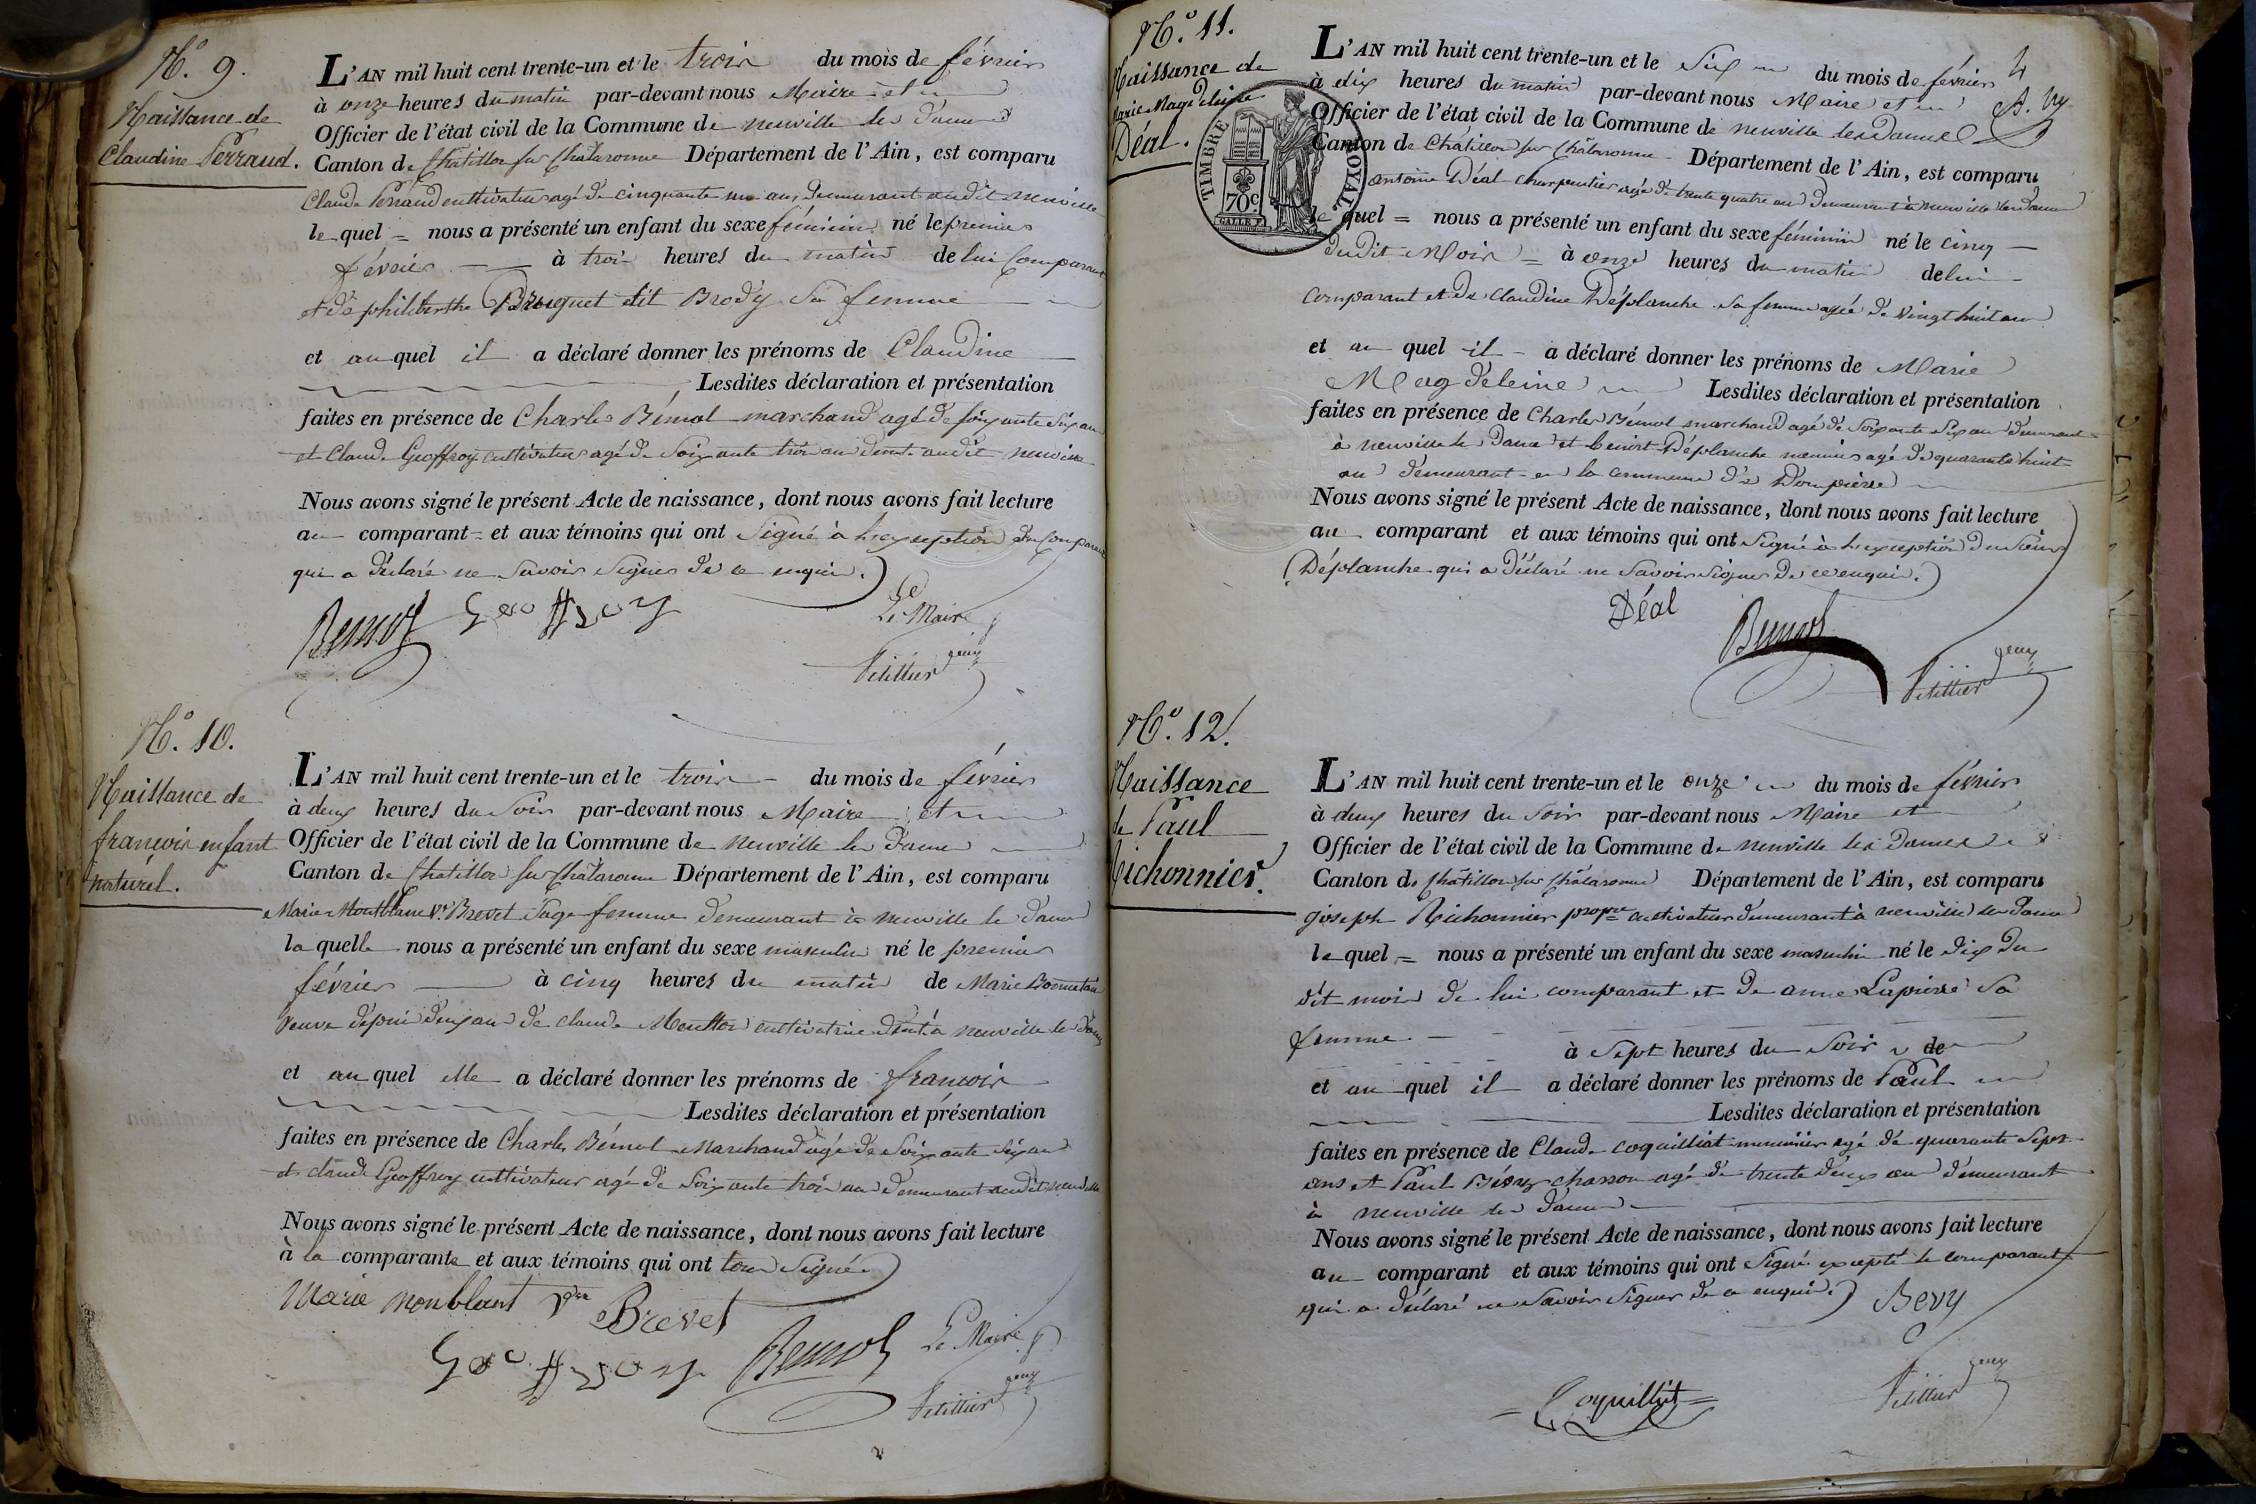 N.° 9.
Naissance de
Claudine Perraud.
L'AN mil huit cent trente-un et le trois du mois de février
à onze heures du matin par-devant nous Maire et
Officier de l'état civil de la Commune de neuville les Dames
Canton de Châtillon sur Chalaronne Département de l'Ain, est comparu
Claude Perraud cultivateur agé de cinquante un ans demeurant audit neuville
lequel = nous a présenté un enfant du sexe féminin né le premier
février à trois heures du matin de lui Comparant
et de philiberthe Broquet dit Brody sa femme
et auquel il a déclaré donner les prénoms de Claudine
Lesdites déclaration et présentation
faites en présence de Charles Bémol marchand agé de soixante six ans
et Claude Geoffroy cultivateur agé de soixante trois ans demt audit neuville
Nous avons signé le présent Acte de naissance, dont nous avons fait lecture
au comparant = et aux témoins qui ont signé à l'exception du Comparant
qui a déclaré ne savoir signer de ce enquis.
Bemol Geoffroy
Le Maire
Vitillier
N.° 10.
Naissance de
françois enfant
naturel.
L'AN mil huit cent trente-un et le trois du mois de février
à deux heures du soir par-devant nous Maire et
Officier de l'état civil de la Commune de neuville les Dames
Canton de Châtillon sur Chalaronne Département de l'Ain, est comparu
Marie Montblanc Ve Brevet Sage femme demeurant à neuville les Dames
laquelle nous a présenté un enfant du sexe masculin né le premier
février à cinq heures du matin de Marie
veuve depuis deux ans de claude cultivatrice demt à neuville les Dames
et auquel elle a déclaré donner les prénoms de françois
Lesdites déclaration et présentation
faites en présence de Charles Bémol Marchand agé de soixante six ans
et claude Geoffroy cultivateur agé de soixante trois ans demeurant audit neuville
Nous avons signé le présent Acte de naissance, dont nous avons fait lecture
à la comparante et aux témoins qui ont tous signé.
Marie monblant Vve Brevet
Geoffroy Bemol Le Maire
Vitillier
4
A. Vy
N.° 11.
Naissance de
Marie Magdeleine
Déal.
TIMBRE ROYAL
70c
L'AN mil huit cent trente-un et le six du mois de février
à dix heures du matin par-devant nous Maire et
Officier de l'état civil de la Commune de neuville les Dames
Canton de Châtillon sur Chalaronne Département de l'Ain, est comparu
antoine Déal charpentier agé de trente quatre ans demeurant à neuville les dames
lequel = nous a présenté un enfant du sexe féminin né le cinq
dudit Mois = à onze heures du matin de lui
comparant et de claudine Déplanche sa femme agée de vingt huit ans
et auquel il a déclaré donner les prénoms de Marie
Magdeleine Lesdites déclaration et présentation
faites en présence de Charles Bémol marchand agé de soixante six ans demeurant
à neuville les Dames et benoit Déplanche meunier agé de quarante huit
ans demeurant en la commune de Dompierre
Nous avons signé le présent Acte de naissance, dont nous avons fait lecture
au comparant et aux témoins qui ont signé à l'exception du sieur
Déplanche qui a déclaré ne savoir signer de ce enquis.
Déal
Bemol
Vitillier
N.° 12.
Naissance
de Paul
Richonnier.
L'AN mil huit cent trente-un et le onze du mois de février
à deux heures du soir par-devant nous Maire et
Officier de l'état civil de la Commune de neuville les Dames
Canton de Châtillon sur Chalaronne Département de l'Ain, est comparu
joseph Richonnier propre cultivateur demeurant à neuville les dames
lequel = nous a présenté un enfant du sexe masculin né le dix du
dit mois de lui comparant et de anne Lapierre sa
femme.
à sept heures du soir de
et auquel il a déclaré donner les prénoms de Paul
Lesdites déclaration et présentation
faites en présence de Claude coquilliat meunier agé de quarante sept
ans et Paul Bévy charron agé de trente deux ans demeurant
à neuville les Dames
Nous avons signé le présent Acte de naissance, dont nous avons fait lecture
au comparant et aux témoins qui ont signé excepté le comparant
qui a déclaré ne savoir signer de ce enquis. Bevy
Coquilliat
Vitillier